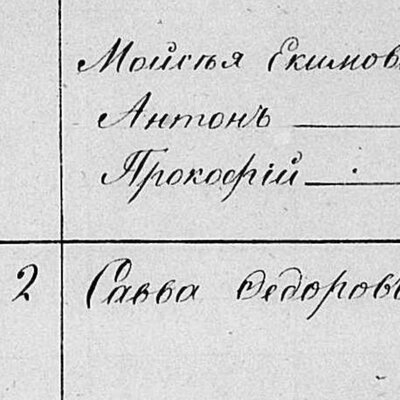 Мойсѣя Екимов
Антонъ
Прокофій
2 Савва Ѳедоровъ